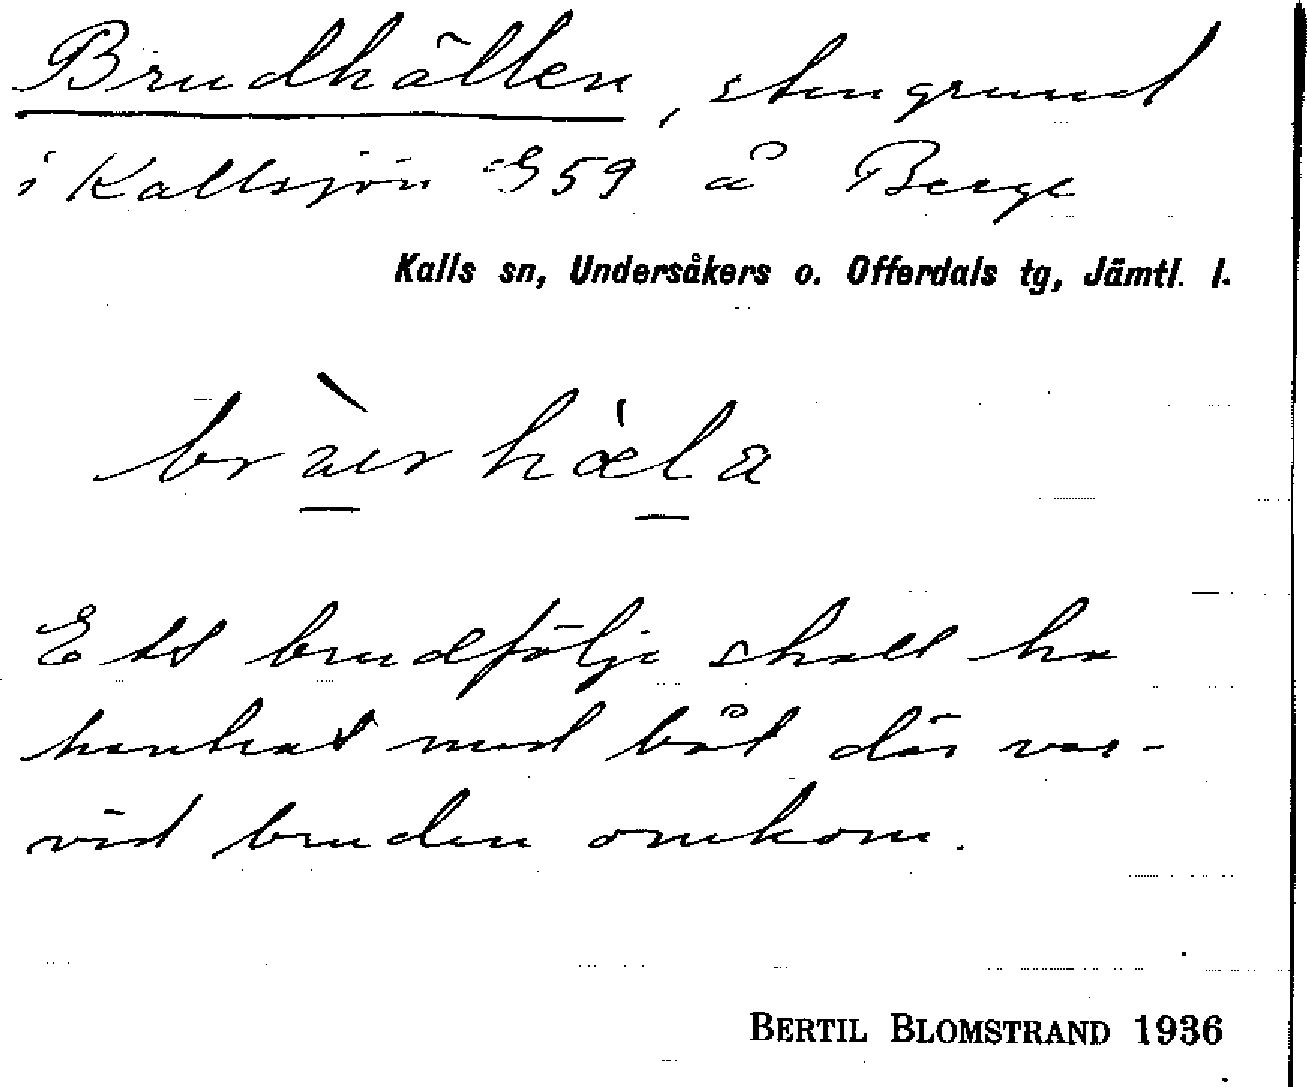 Brudhällen, stengrund
i Kallsjön G 59 å Berge
Kalls sn, Undersåkers o. Offerdals tg, Jämtl. l.
Ett brudfölje skall ha
kantrat med båt där var-
vid bruden omkom.
BERTIL BLOMSTRAND 1936